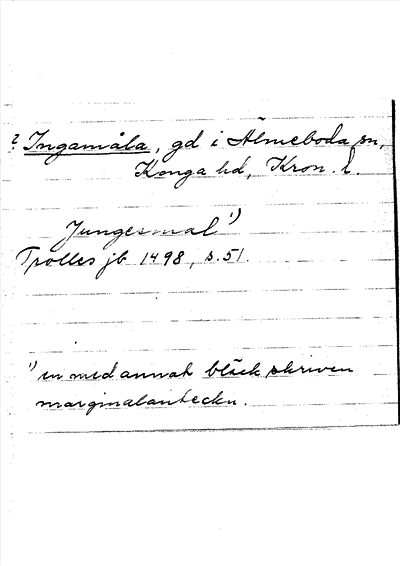 ? Ingamåla, gd i Älmeboda sn,
Konga hd, Kron. l.
Jungesmal 1)
Trolles jb 1498, s. 51
1) en med annat bläck skriven
marginalanteckn.